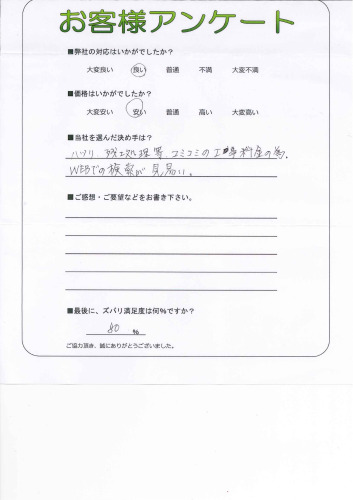 お客様アンケート
■弊社の対応はいかがでしたか？
大変良い 良い 普通 不満 大変不満
■価格はいかがでしたか？
大変安い 安い 普通 高い 大変高い
■当社を選んだ決め手は？
ハツリ、残土処理等 コミコミの工事料金の為.
WEBでの検索が見易い。
■ご感想・ご要望などをお書き下さい。
■最後に、ズバリ満足度は何％ですか？
80 %
ご協力頂き、誠にありがとうございました。